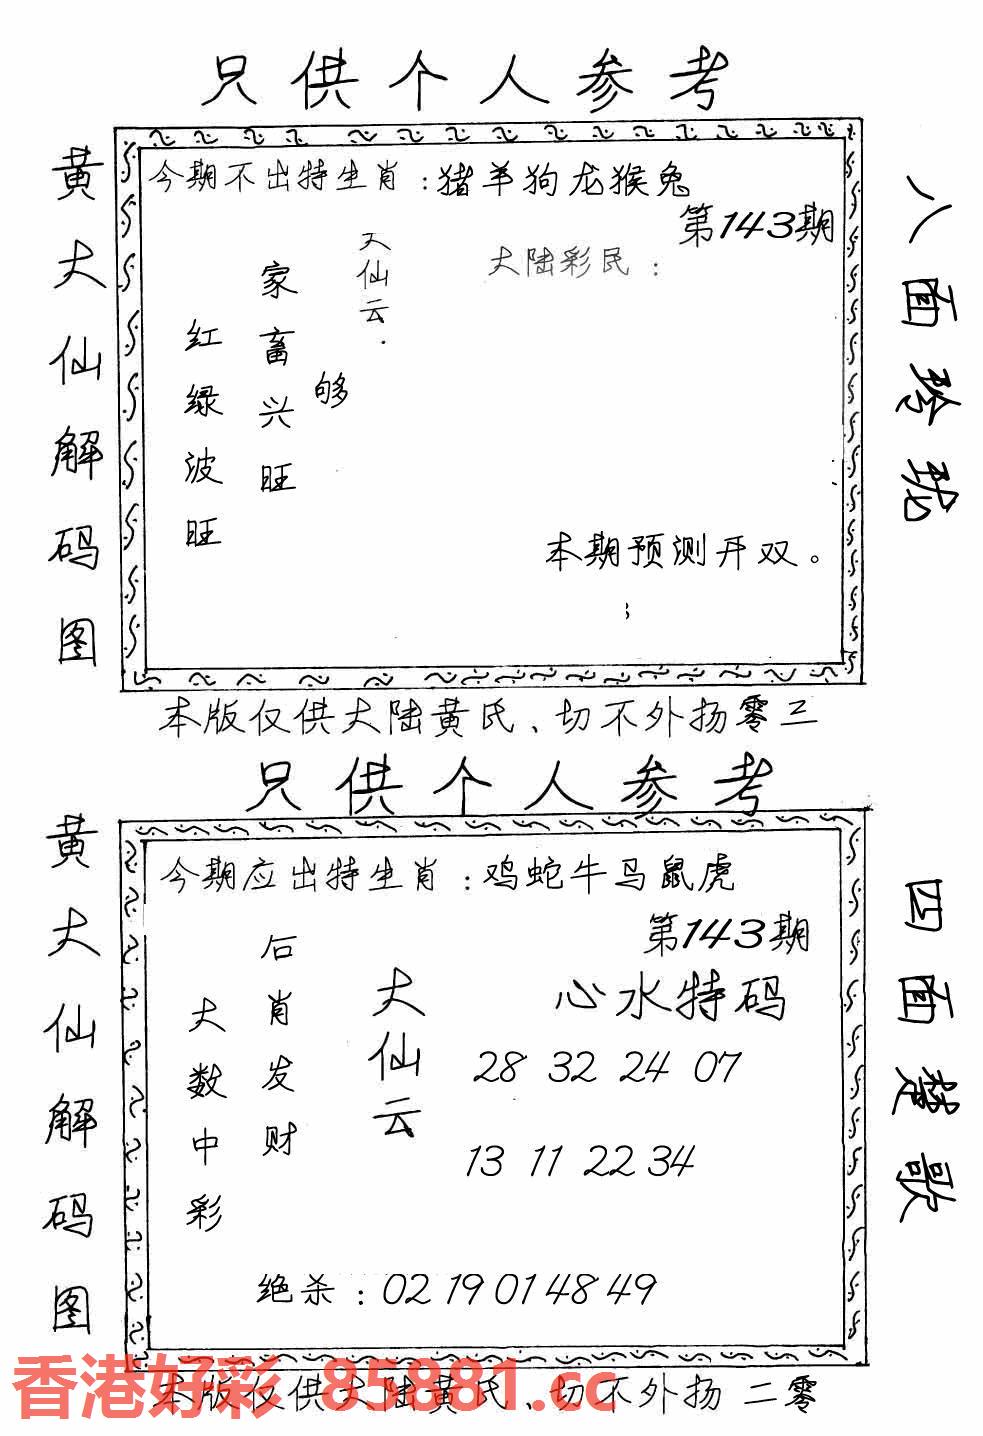 只供个人参考
黄大仙解码图
今期不出特生肖:猪羊狗龙猴兔
第143期
大仙云.
大陆彩民:
家畜兴旺
够
红绿波旺
本期预测开双。
八面玲珑
本版仅供大陆黄氏、切不外扬零三
只供个人参考
黄大仙解码图
今期应出特生肖:鸡蛇牛马鼠虎
第143期
大仙云
后肖发财
大数中彩
心水特码
28 32 24 07
13 11 22 34
绝杀:02 19 01 48 49
四面楚歌
香港好彩 85881.cc
本版仅供大陆黄氏、切不外扬二零